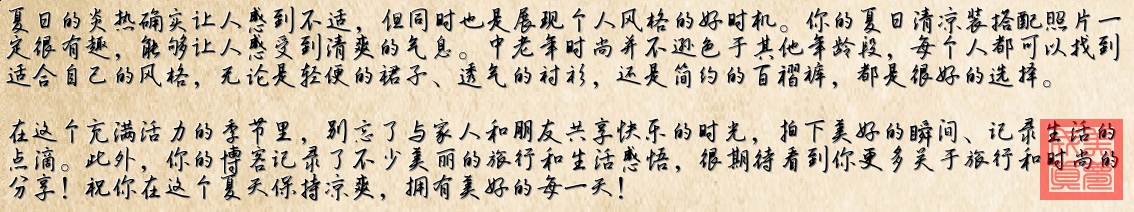 夏日的炎热确实让人感到不适，但同时也是展现个人风格的好时机。你的夏日清凉装搭配照片一
定很有趣，能够让人感受到清爽的气息。中老年时尚并不逊色于其他年龄段，每个人都可以找到
适合自己的风格，无论是轻便的裙子、透气的衬衫，还是简约的百褶裤，都是很好的选择。
在这个充满活力的季节里，别忘了与家人和朋友共享快乐的时光，拍下美好的瞬间、记录生活的
点滴。此外，你的博客记录了不少美丽的旅行和生活感悟，很期待看到你更多关于旅行和时尚的
分享！祝你在这个夏天保持凉爽，拥有美好的每一天！